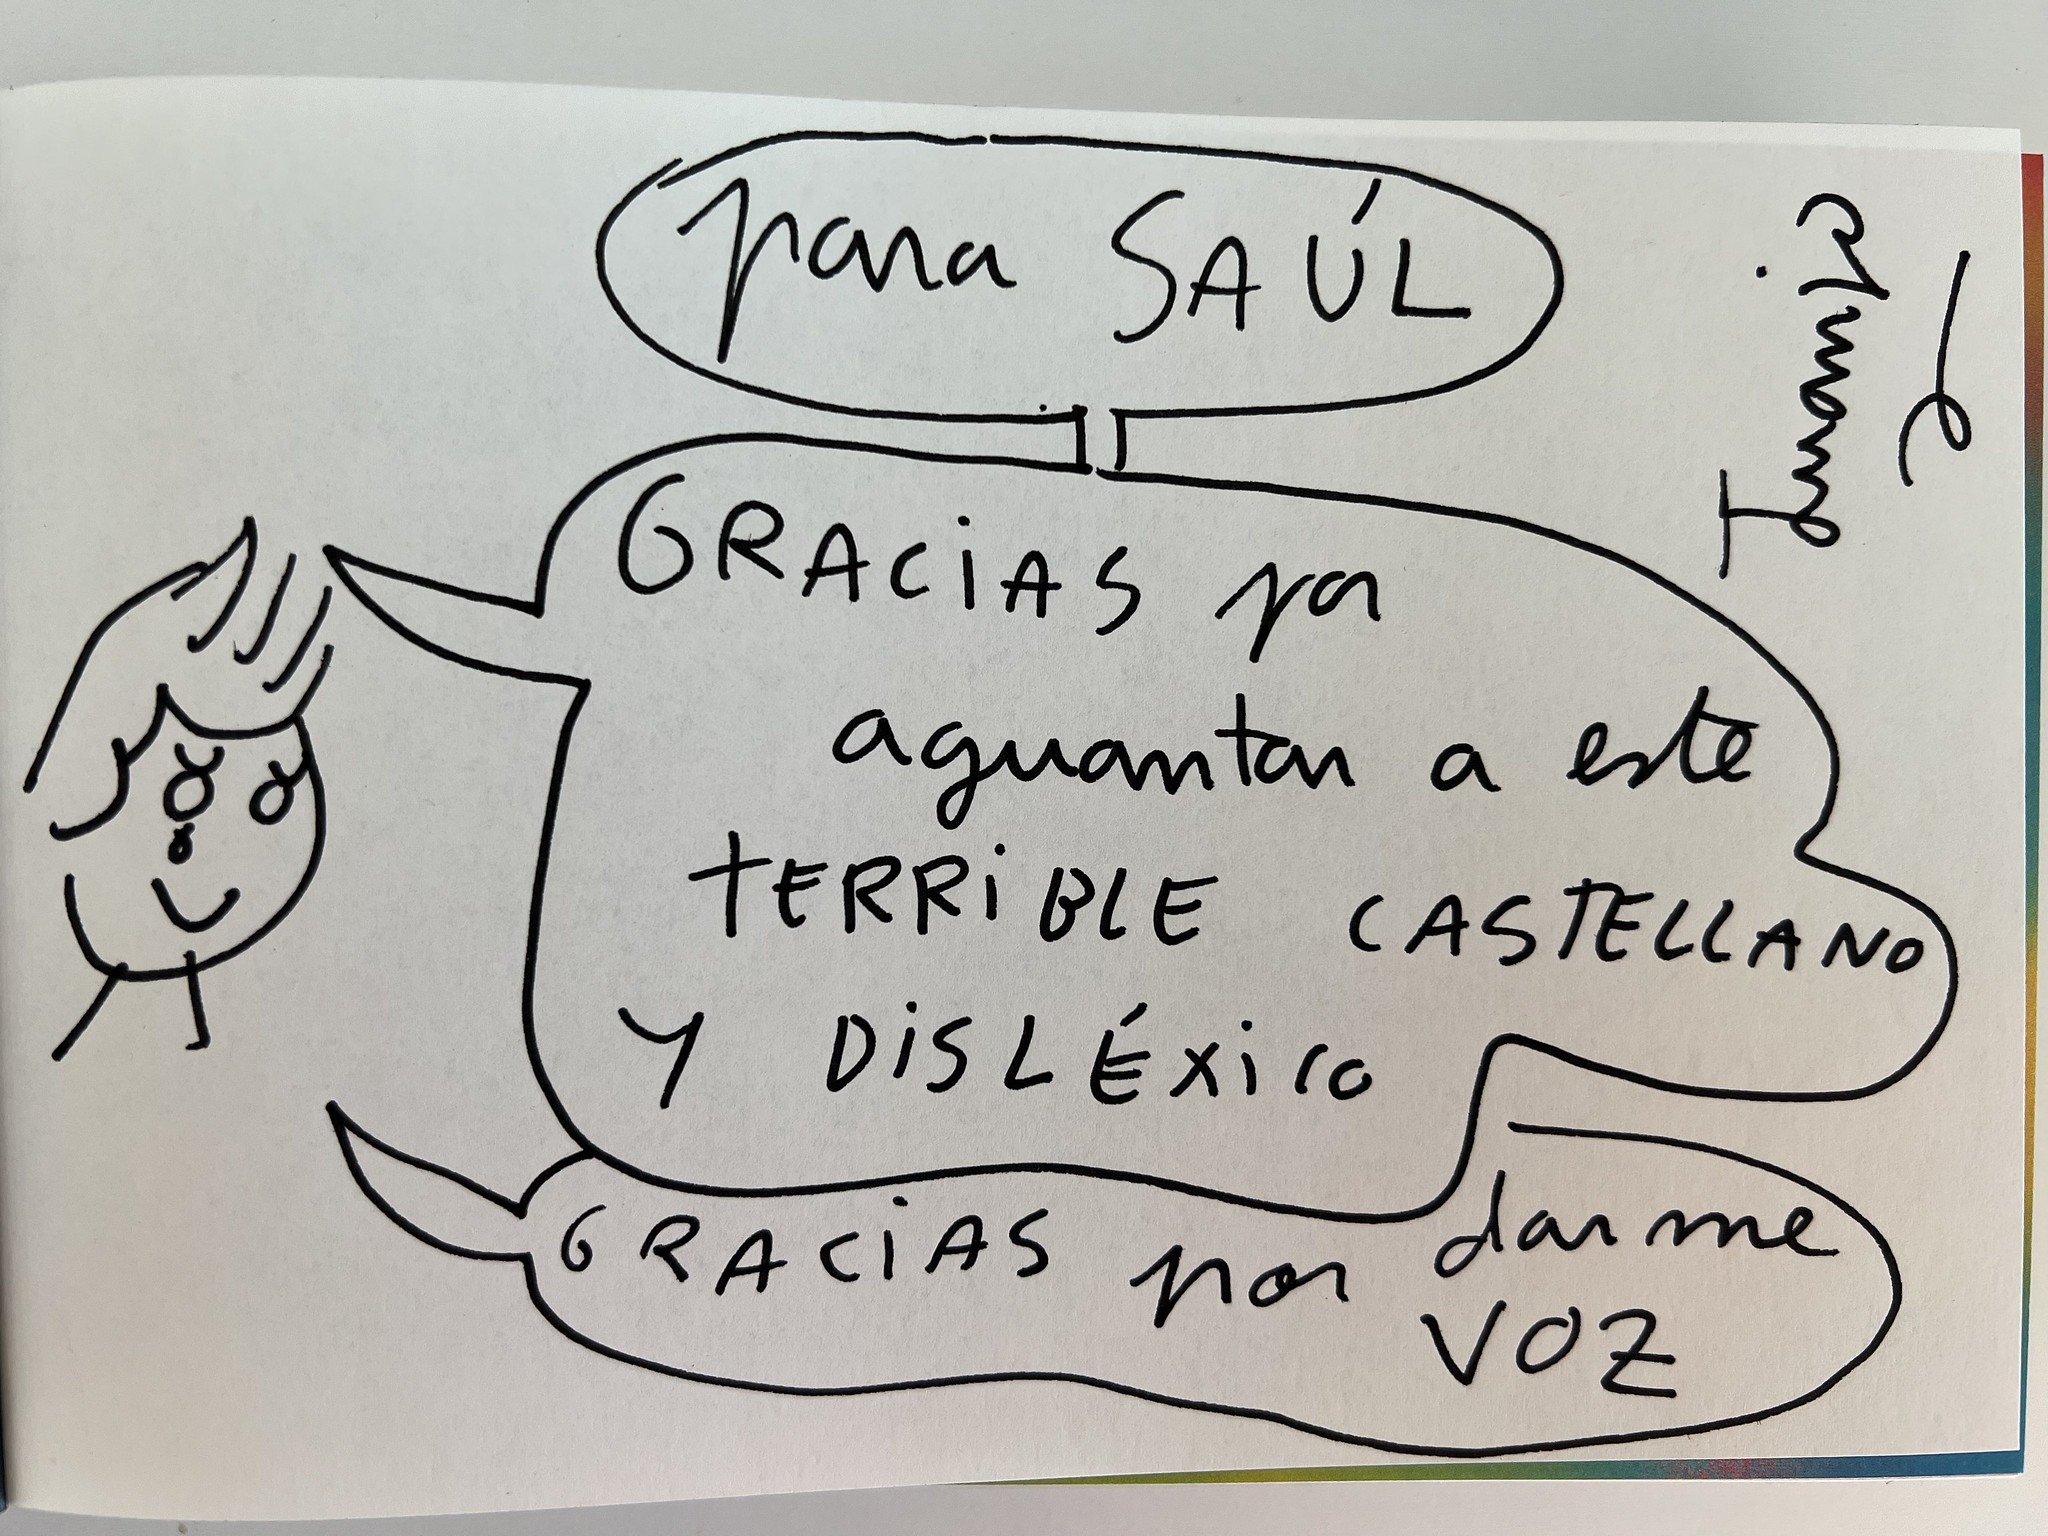 para SAÚL
GRACIAS por
aguantar a este
TERRIBLE CASTELLANO
Y DISLÉXICO
GRACIAS por darme
VOZ
Juanjo